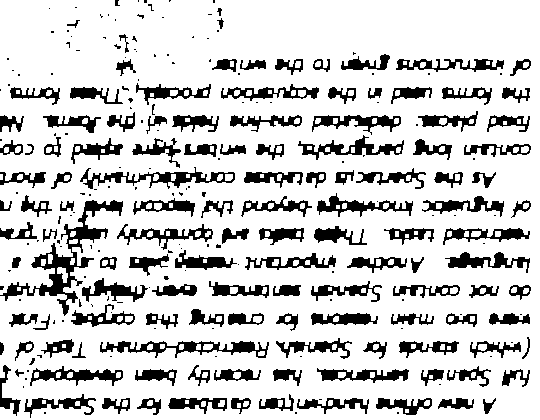 A new offline hand-written database for the Spanish
full Spanish sentences, has recently been developed
(which stands for Spanish Restricted-domain Task of
were two main reasons for creating this corpus. First
do not contain Spanish sentences, even though Spanish
language. Another important reason was to create a
restricted tasks. These tasks are commonly used in
of linguistic knowledge beyond the lexicon level in the
As the Spartacus database consisted mainly of short
contain long paragraphs, the writers were asked to copy
fixed places: dedicated one-line fields in the forms.
the forms used in the acquisition process. These forms
of instructions given to the writer.